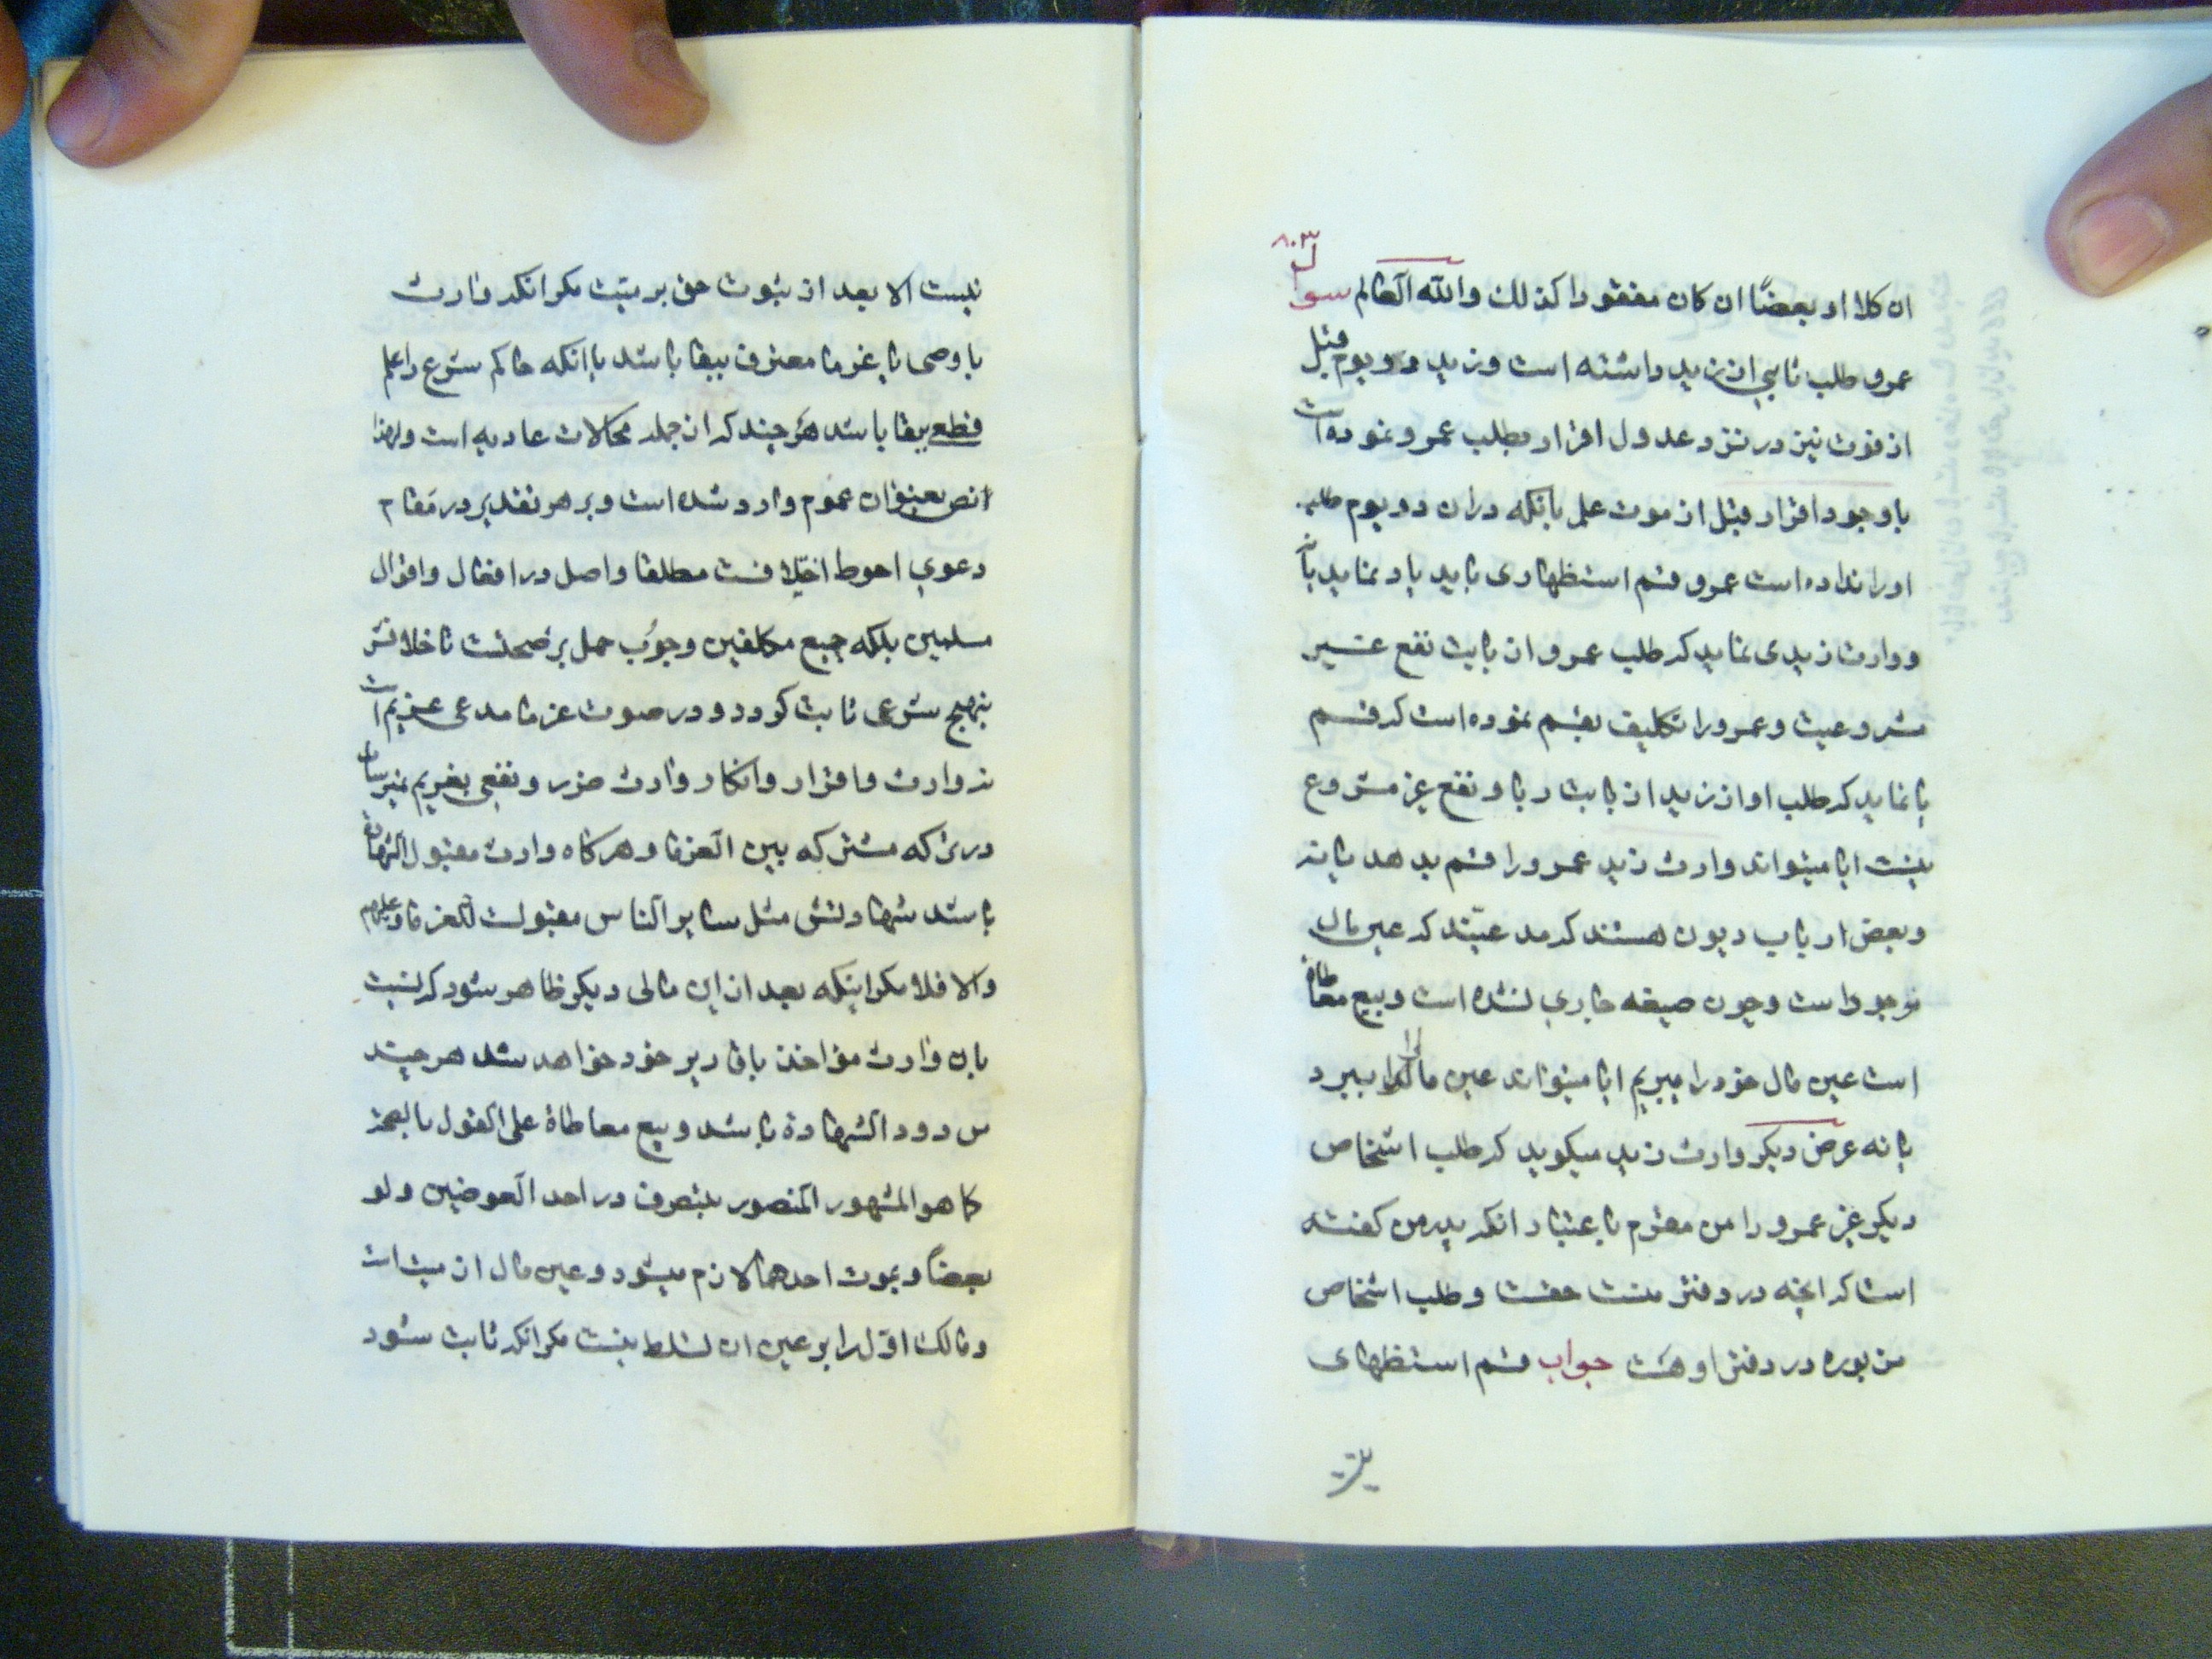 ان کلا او بعضًا ان کان مفقودا کذلک والله العالم سوال ٨٠٣
عمرو طلب ثابتی از زید داشته است و زید دو یوم قبل
از فوت نیز در نزد عدول اقرار بطلب عمرو نموده است
با وجود اقرار قبل از موت علم بانکه در ان دو یوم طلب
اورا نداده است عمرو قسم استظهاری باید یاد نماید یا نه
و وارث زید می نماید که طلب عمرو از بابت نفع غیر
مشروعیت و عمرو را تکلیف بقسم نموده است که قسم
یا نماید که طلب او از زید از بابت ربا و نفع غیر مشروع
نیست ایا میتواند وارث زید عمرو را قسم بدهد یا نه
و بعض ارباب دیون هستند که مدعیند که عین مال
موجود است و چون صیغه جاری نشده است و بیع معاطاة
است عین مال خود را میبریم ایا میتواند عین مال را ببرد
یا نه عرض دیگر وارث زید میگوید که طلب اشخاص
دیگر غیر عمرو را من مقرم باعتبار انکه پدرمن گفته
است که انچه در دفتر منست حقست و طلب اشخاص
مزبوره در دفتر او هست جواب قسم استظهاری
نیست الا بعد از ثبوت حق بر میت مکر انکه وارث
یا وصی یا غرما معترف ببقا باشد یا انکه حاکم شرع را علم
قطع ببقا باشد هر چند که از جمله محالات عادیه است ولهذا
نص بعنوان عموم وارد شده است و بر هر تقدیر در مقام
دعوی احوط اخیلا فست مطلقا و اصل در افعال و اقوال
مسلمین بلکه جمیع مکلفین وجوب حمل بر صحتست تا خلافش
بنهج شرعی ثابت کردد و در صوت غرما مدعی غریم است
نه وارث و اقرار و انکار وارث ضرر و نفعی بغریم نمیرساند
در ترکه مشترکه بین الغرما و هرکاه وارث مقبول الشهادة
باشد شهادتش مثل سایر الناس مقبولست للغرما و علیهم
والا فلا مکر اینکه بعد از این مالی دیکر ظاهر شود که نسبت
بان وارث مؤاخذ باقاریر خود خواهد شد هر چند
مردود الشهادة باشد و بیع معاطاة علی القول بالصحة
کما هو المشهور المنصور بتصرف در احد العوضین ولو
بعضًا و بموت احدهما لازم میشود و عین مال از میت است
و مالک اول را بر عین ان تسلط نیست مکر انکه ثابت شود